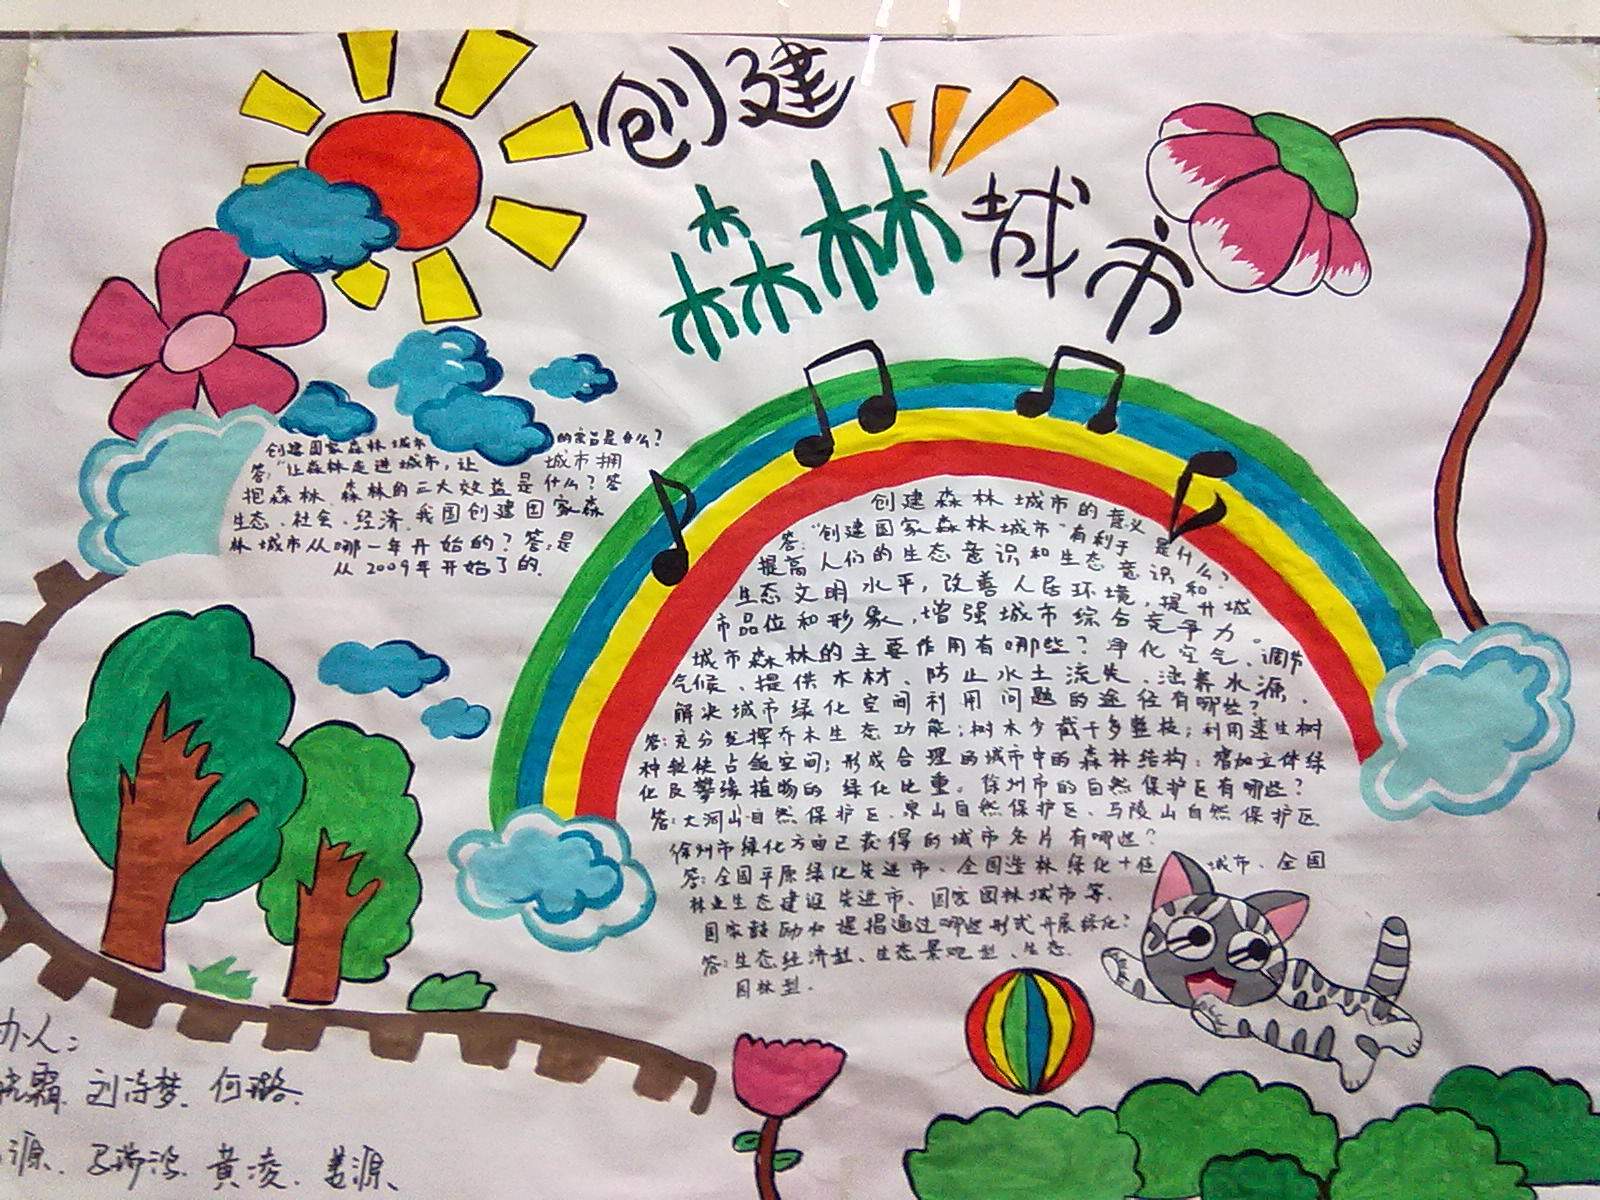 创建
森林城市
创建国家森林城市 的宗旨是什么?
答:“让森林走进城市,让 城市拥
抱森林、森林的三大效益是什么?答
生态、社会、经济.我国创建国家森
林城市从哪一年开始的?答:是
从2009年开始了的.
创建森林城市的意义
是什么?
答:“创建国家森林城市”有利于
提高人们的生态意识和生态意识和
生态文明水平,改善人居环境,提升城
市品位和形象,增强城市综合竞争力。
城市森林的主要作用有哪些?净化空气、调节
气候、提供木材、防止水土流失、涵养水源.
解决城市绿化空间利用问题的途径有哪些?
答:充分发挥乔木生态功能;树木少截干多整枝;利用速生树
种较快占领空间;形成合理的城市中的森林结构;增加立体绿
化及攀缘植物的绿化比重。徐州市的自然保护区有哪些?
答:大洞山自然保护区、泉山自然保护区、马陵山自然保护区
徐州市绿化方面已获得的城市名片有哪些?
答:全国平原绿化先进市、全国造林绿化十佳 城市、全国
林业生态建设先进市、国家园林城市等.
国家鼓励和提倡通过哪些形式开展绿化?
答:生态经济型、生态景观型、生态.
园林型.
办人:
霜、刘诗梦、何璐.
源、 黄凌、 源、